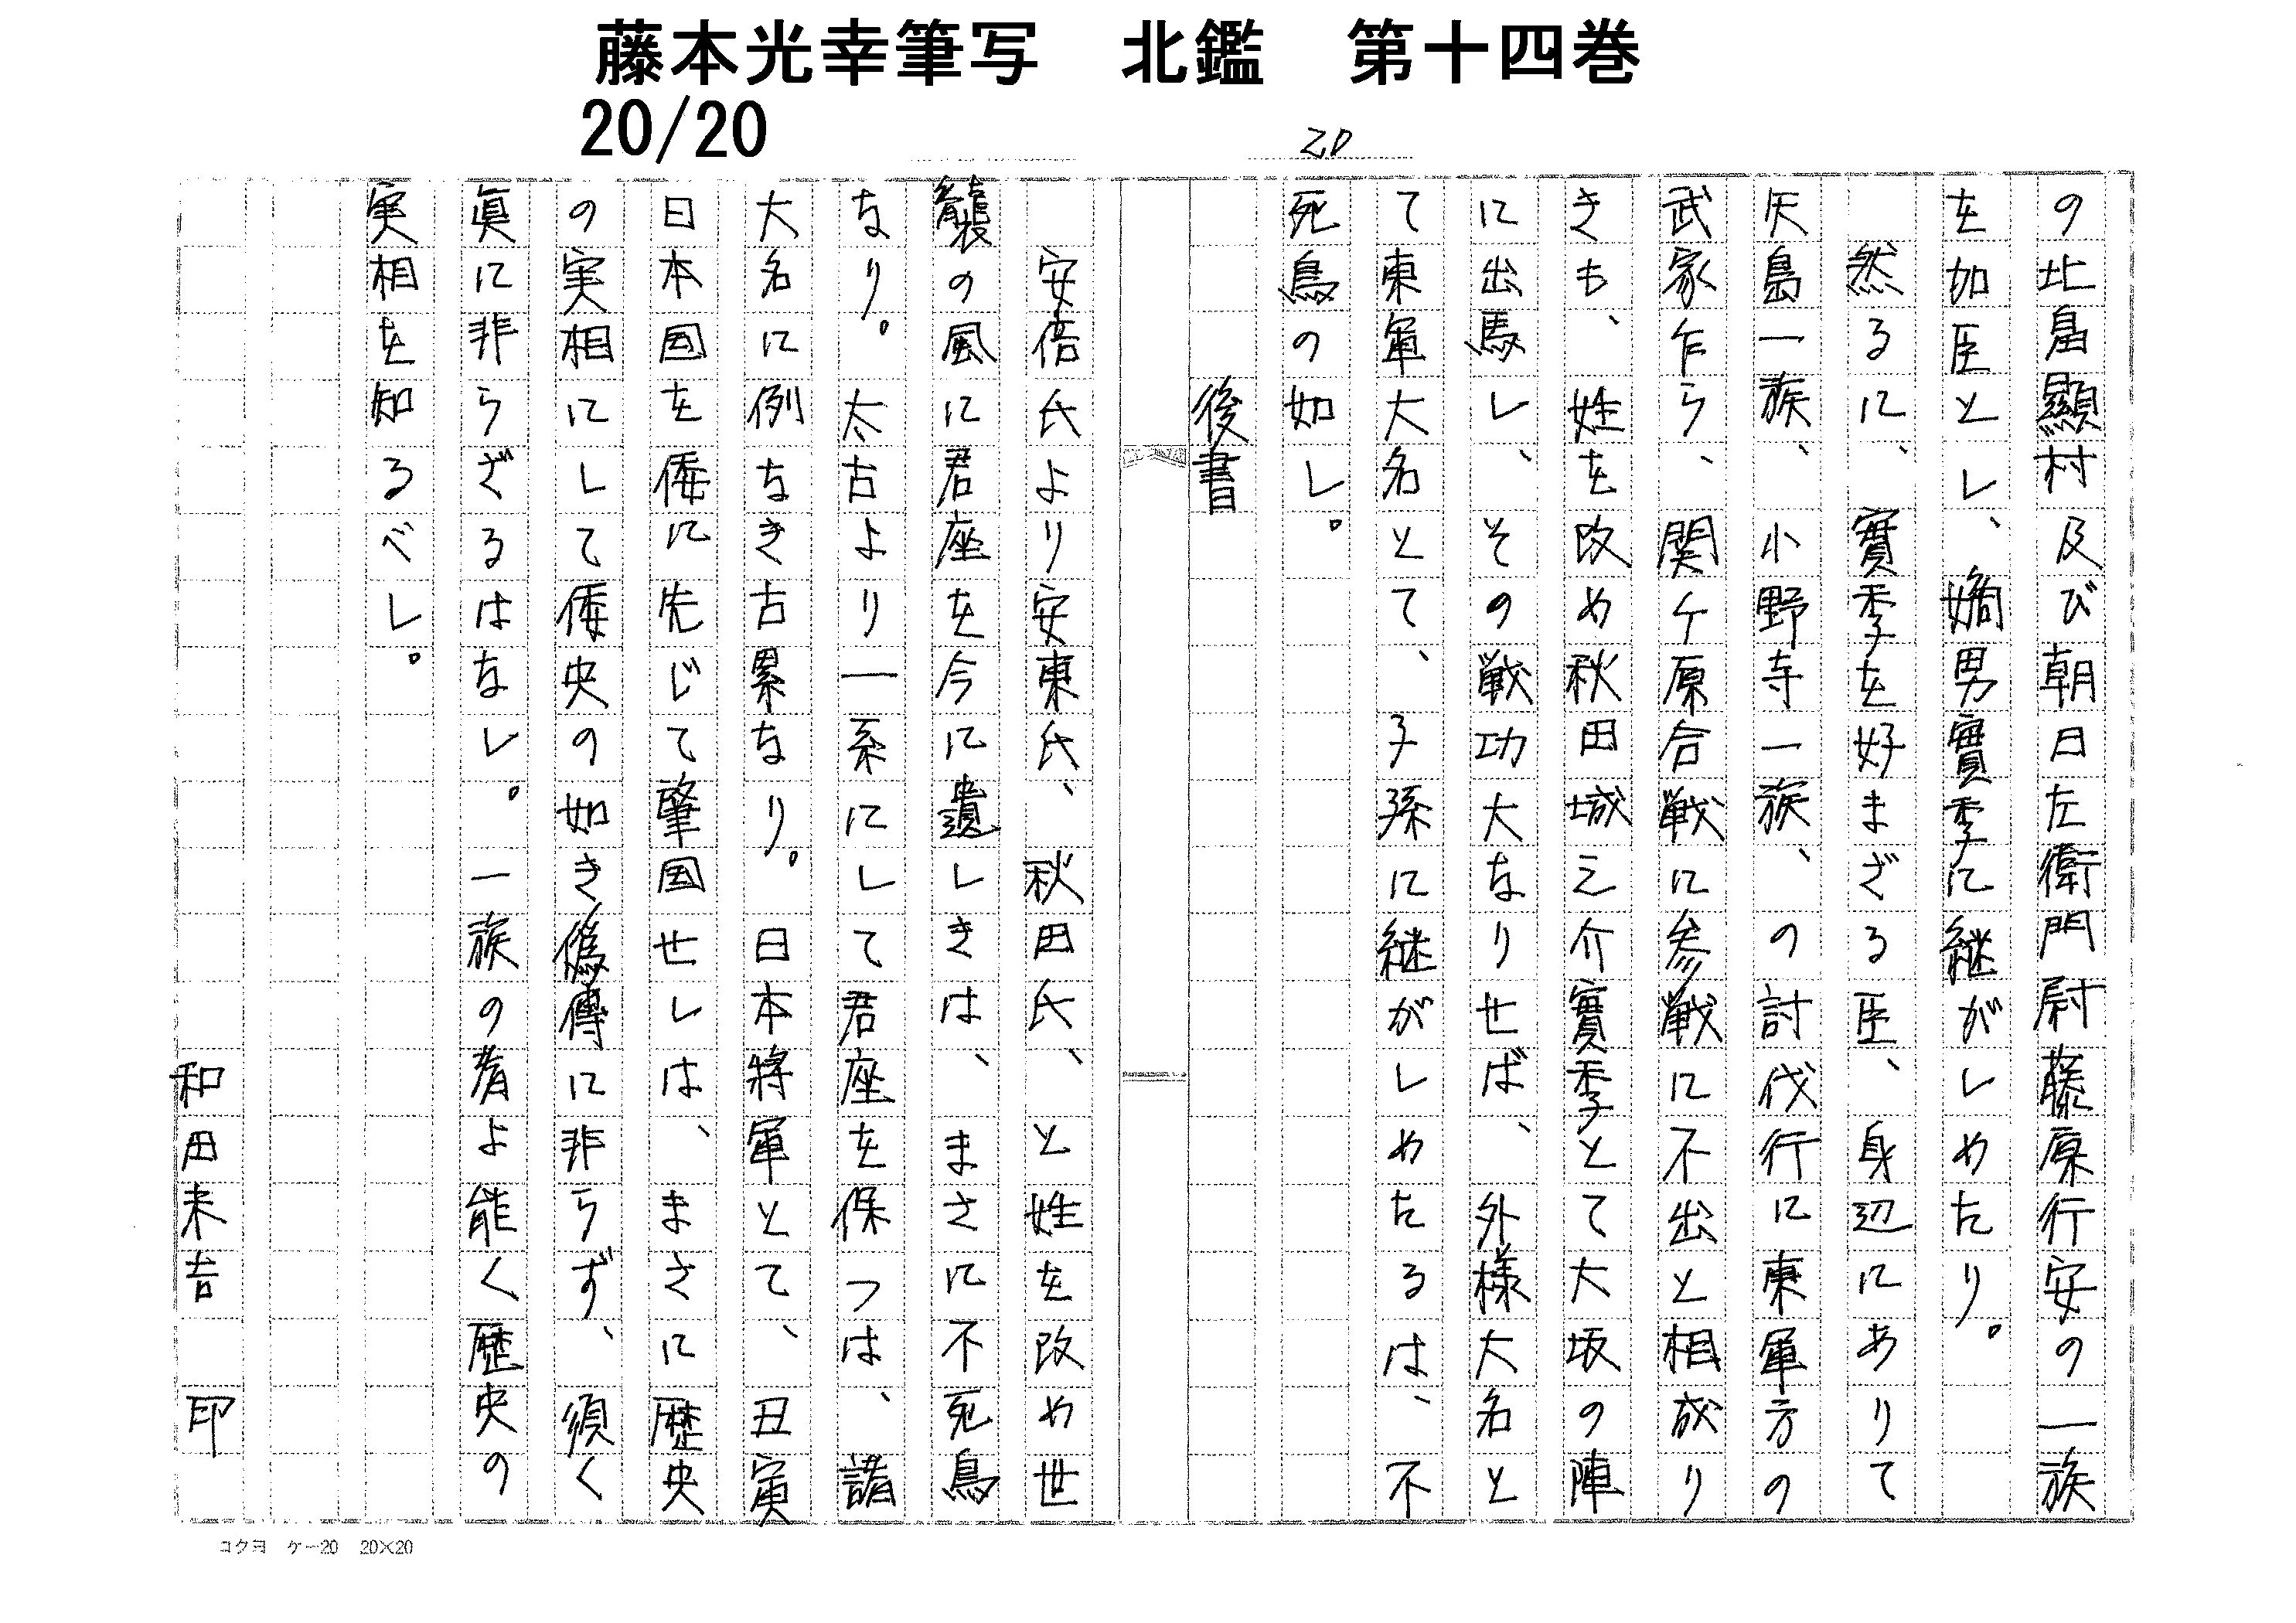 藤本光幸筆写　北鑑　第十四巻
20/20
20
の北畠顯村及び朝日左衛門尉藤原行安の一族
を加臣とし、嫡男實季に継がしめたり。
然るに、實季を好まざる臣、身辺にありて
矢島一族、小野寺一族、の討伐行に東軍方の
武家乍ら、関ケ原合戦に参戦に不出と相成り
きも、姓を改め秋田城之介實季とて大坂の陣
に出馬し、その戦功大なり世ば、外様大名と
て東軍大名とて、子孫に継がしめたるは、不
死鳥の如し。
後書
安倍氏より安東氏、秋田氏、と姓を改め世
襲の風に君座を今に遺しきは、まさに不死鳥
なり。太古より一系にして君座を保つは、諸
大名に例なき古累なり。日本将軍とて、丑寅
日本国を倭に先じて肇国世しは、まさに歴史
の実相にして倭史の如き偽傳に非らず、須く
眞に非らざるはなし。一族の者よ能く歴史の
実相を知るべし。
和田末吉　印
コクヨ　ケー20　20×20